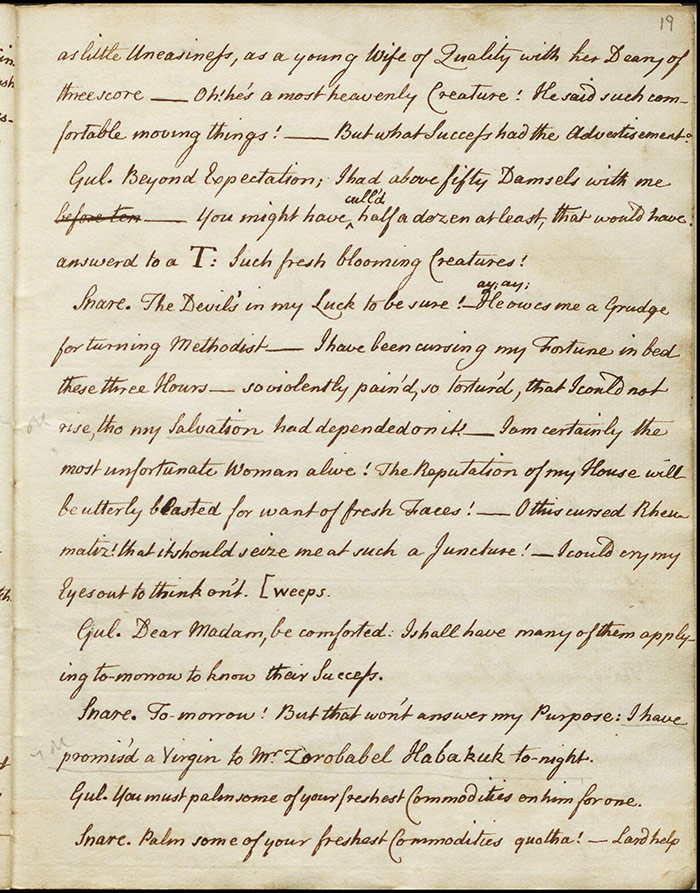 19
as little Uneasiness, as a young Wife of Quality with her Deary of
threescore — Oh! he's a most heavenly Creature! He said such com-
fortable moving things! — But what Success had the Advertisement?
Gul. Beyond Expectation; I had above fifty Damsels with me
cull'd
before ten — You might have ^ half a dozen at least, that would have
answerd to a T: Such fresh blooming Creatures!
ay; ay;
Snare. The Devil's in my Luck to be sure! — He owes me a Grudge
for turning Methodist — I have been cursing my Fortune in bed
these three Hours — so violently pain'd, so tortur'd, that I could not
rise, tho my Salvation had depended on it! — I am certainly the
most unfortunate Woman alive! The Reputation of my House will
be utterly blasted for want of fresh Faces! — O this cursed Rheu-
matiz! that it should seize me at such a Juncture! — I could cry my
Eyes out to think on't. [weeps.
Gul. Dear Madam, be comforted: I shall have many of them apply-
ing to-morrow to know their Success.
Snare. To-morrow! But that won't answer my Purpose: I have
promis'd a Virgin to Mr. Zorobabel Habakuk to-night.
Gul. You must palm some of your freshest Commodities on him for one.
Snare. Palm some of your freshest Commodities quotha! — Lard help